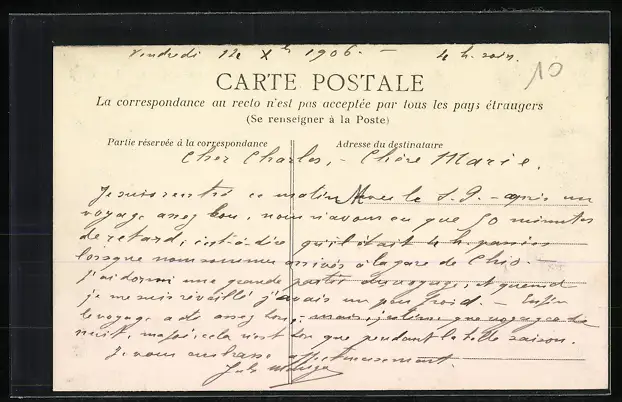 Vendredi 12 Xbre 1906. — 4 h. soir.
10
CARTE POSTALE
La correspondance au recto n'est pas acceptée par tous les pays étrangers
(Se renseigner à la Poste)
Partie réservée à la correspondance
Adresse du destinataire
Cher Charles, - Chère Marie,
Je suis rentré ce matin avec le - après un
voyage assez bon, nous n'avons eu que 50 minutes
de retard, c'est-à-dire qu'il était 4 h. passées
lorsque nous sommes arrivés à la gare de
J'ai dormi une grande partie du voyage, et quand
je me suis réveillé j'avais un peu froid. - Enfin
le voyage a été assez bon, mais j'estime que voyager la
nuit, cela n'est bon que pendant la belle saison.
Je vous embrasse affectueusement.
Jules